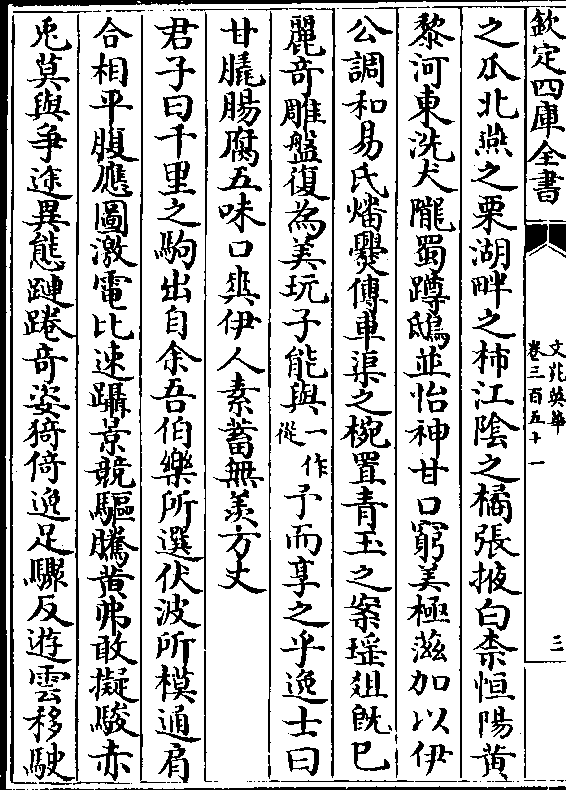 欽定四庫全書
文苑英華
卷三百五十一
三
之瓜北燕之栗湖畔之柿江陰之橘張掖白柰恒陽黄
黎河東洗犬隴蜀蹲鴟並怡神甘口窮美極滋加以伊
公調和易氏燔爨傳車渠之椀置青玉之案瑶俎既已
麗奇雕盤復為美玩子能與一作從予而享之乎逸士曰
甘膬腸腐五味口爽伊人素蓄無羡方丈
君子曰千里之駒出自余吾伯樂所選伏波所模通肩
合相平腹應圖激電比速躡景競驅騰黄弗敢擬駿赤
兎莫與争途異態蹥踡奇姿猗傍逸足驟反遊雲移駛